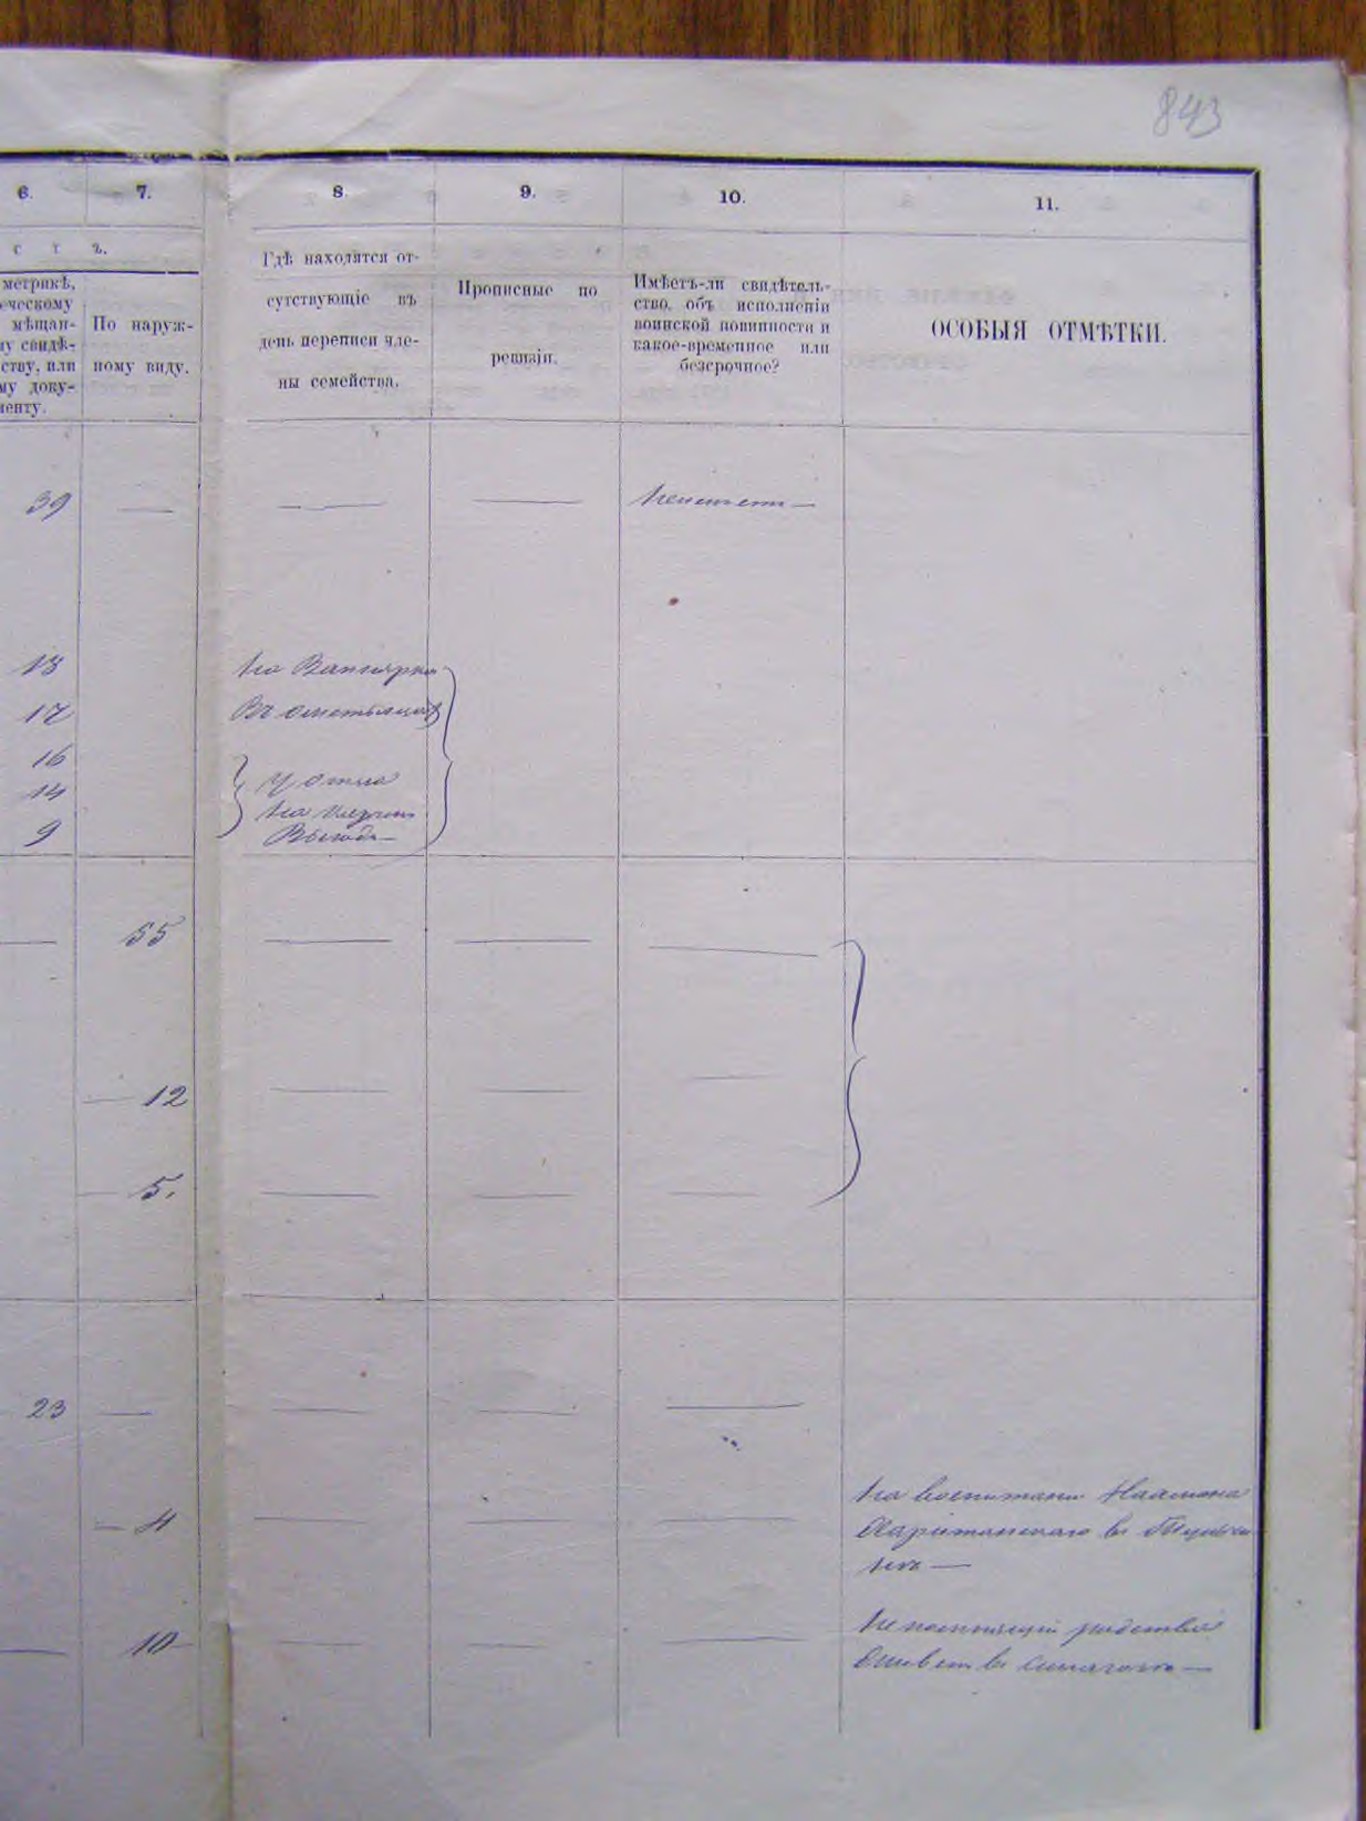 843
6. 7. 8. 9. 10. 11.
с т ъ.
метрикѣ,
ческому
мѣщан-
у свидѣ-
ству, или
му доку-
менту.
По наруж-
ному виду.
Гдѣ находятся от-
сутствующіе въ
день переписи чле-
ны семейства.
Прописные по
ревизіи.
Имѣетъ-ли свидѣтель-
ство, объ исполненіи
воинской повинности и
какое-временное или
безсрочное?
ОСОБЫЯ ОТМѢТКИ.
39 — — — Неимеетъ —
13 На Вапнярки
17
16
14 У отца
9 На
— 55 — — —
— 12 — — —
— 5. — — —
23 — — — —
— 4 — — — На воспитани
въ
— 10 — — — Не родства
въ —